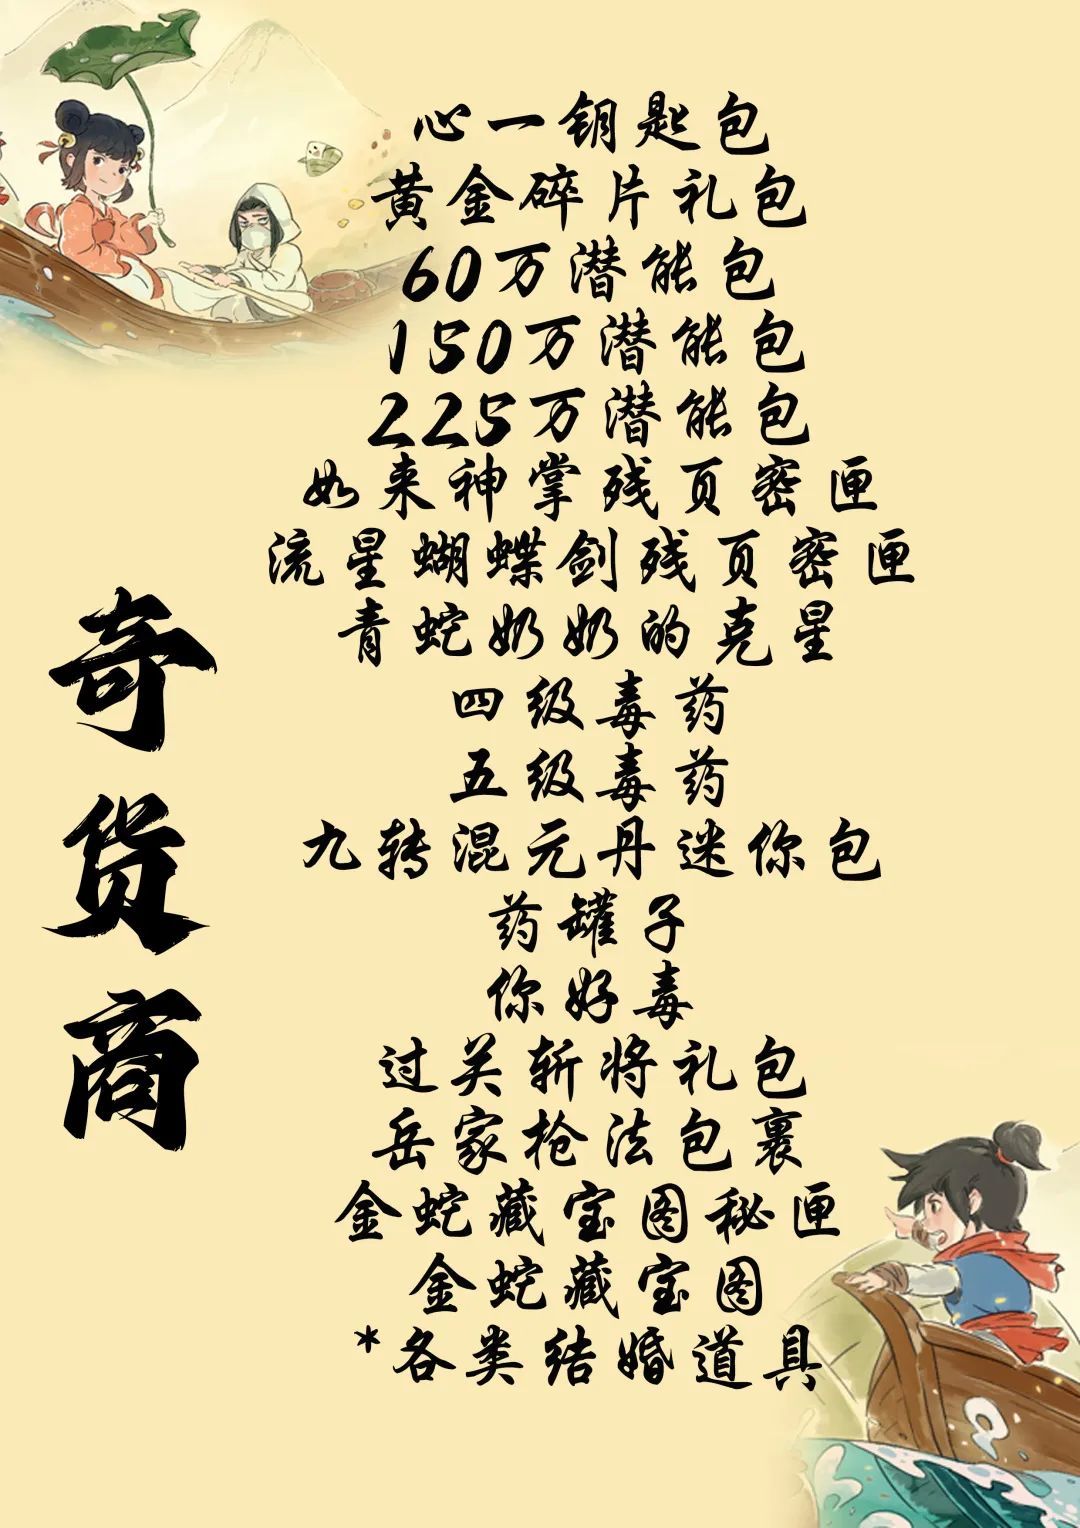 奇货商
心一钥匙包
黄金碎片礼包
60万潜能包
150万潜能包
225万潜能包
如来神掌残页密匣
流星蝴蝶剑残页密匣
青蛇奶奶的克星
四级毒药
五级毒药
九转混元丹迷你包
药罐子
你好毒
过关斩将礼包
岳家枪法包裹
金蛇藏宝图秘匣
金蛇藏宝图
*各类结婚道具